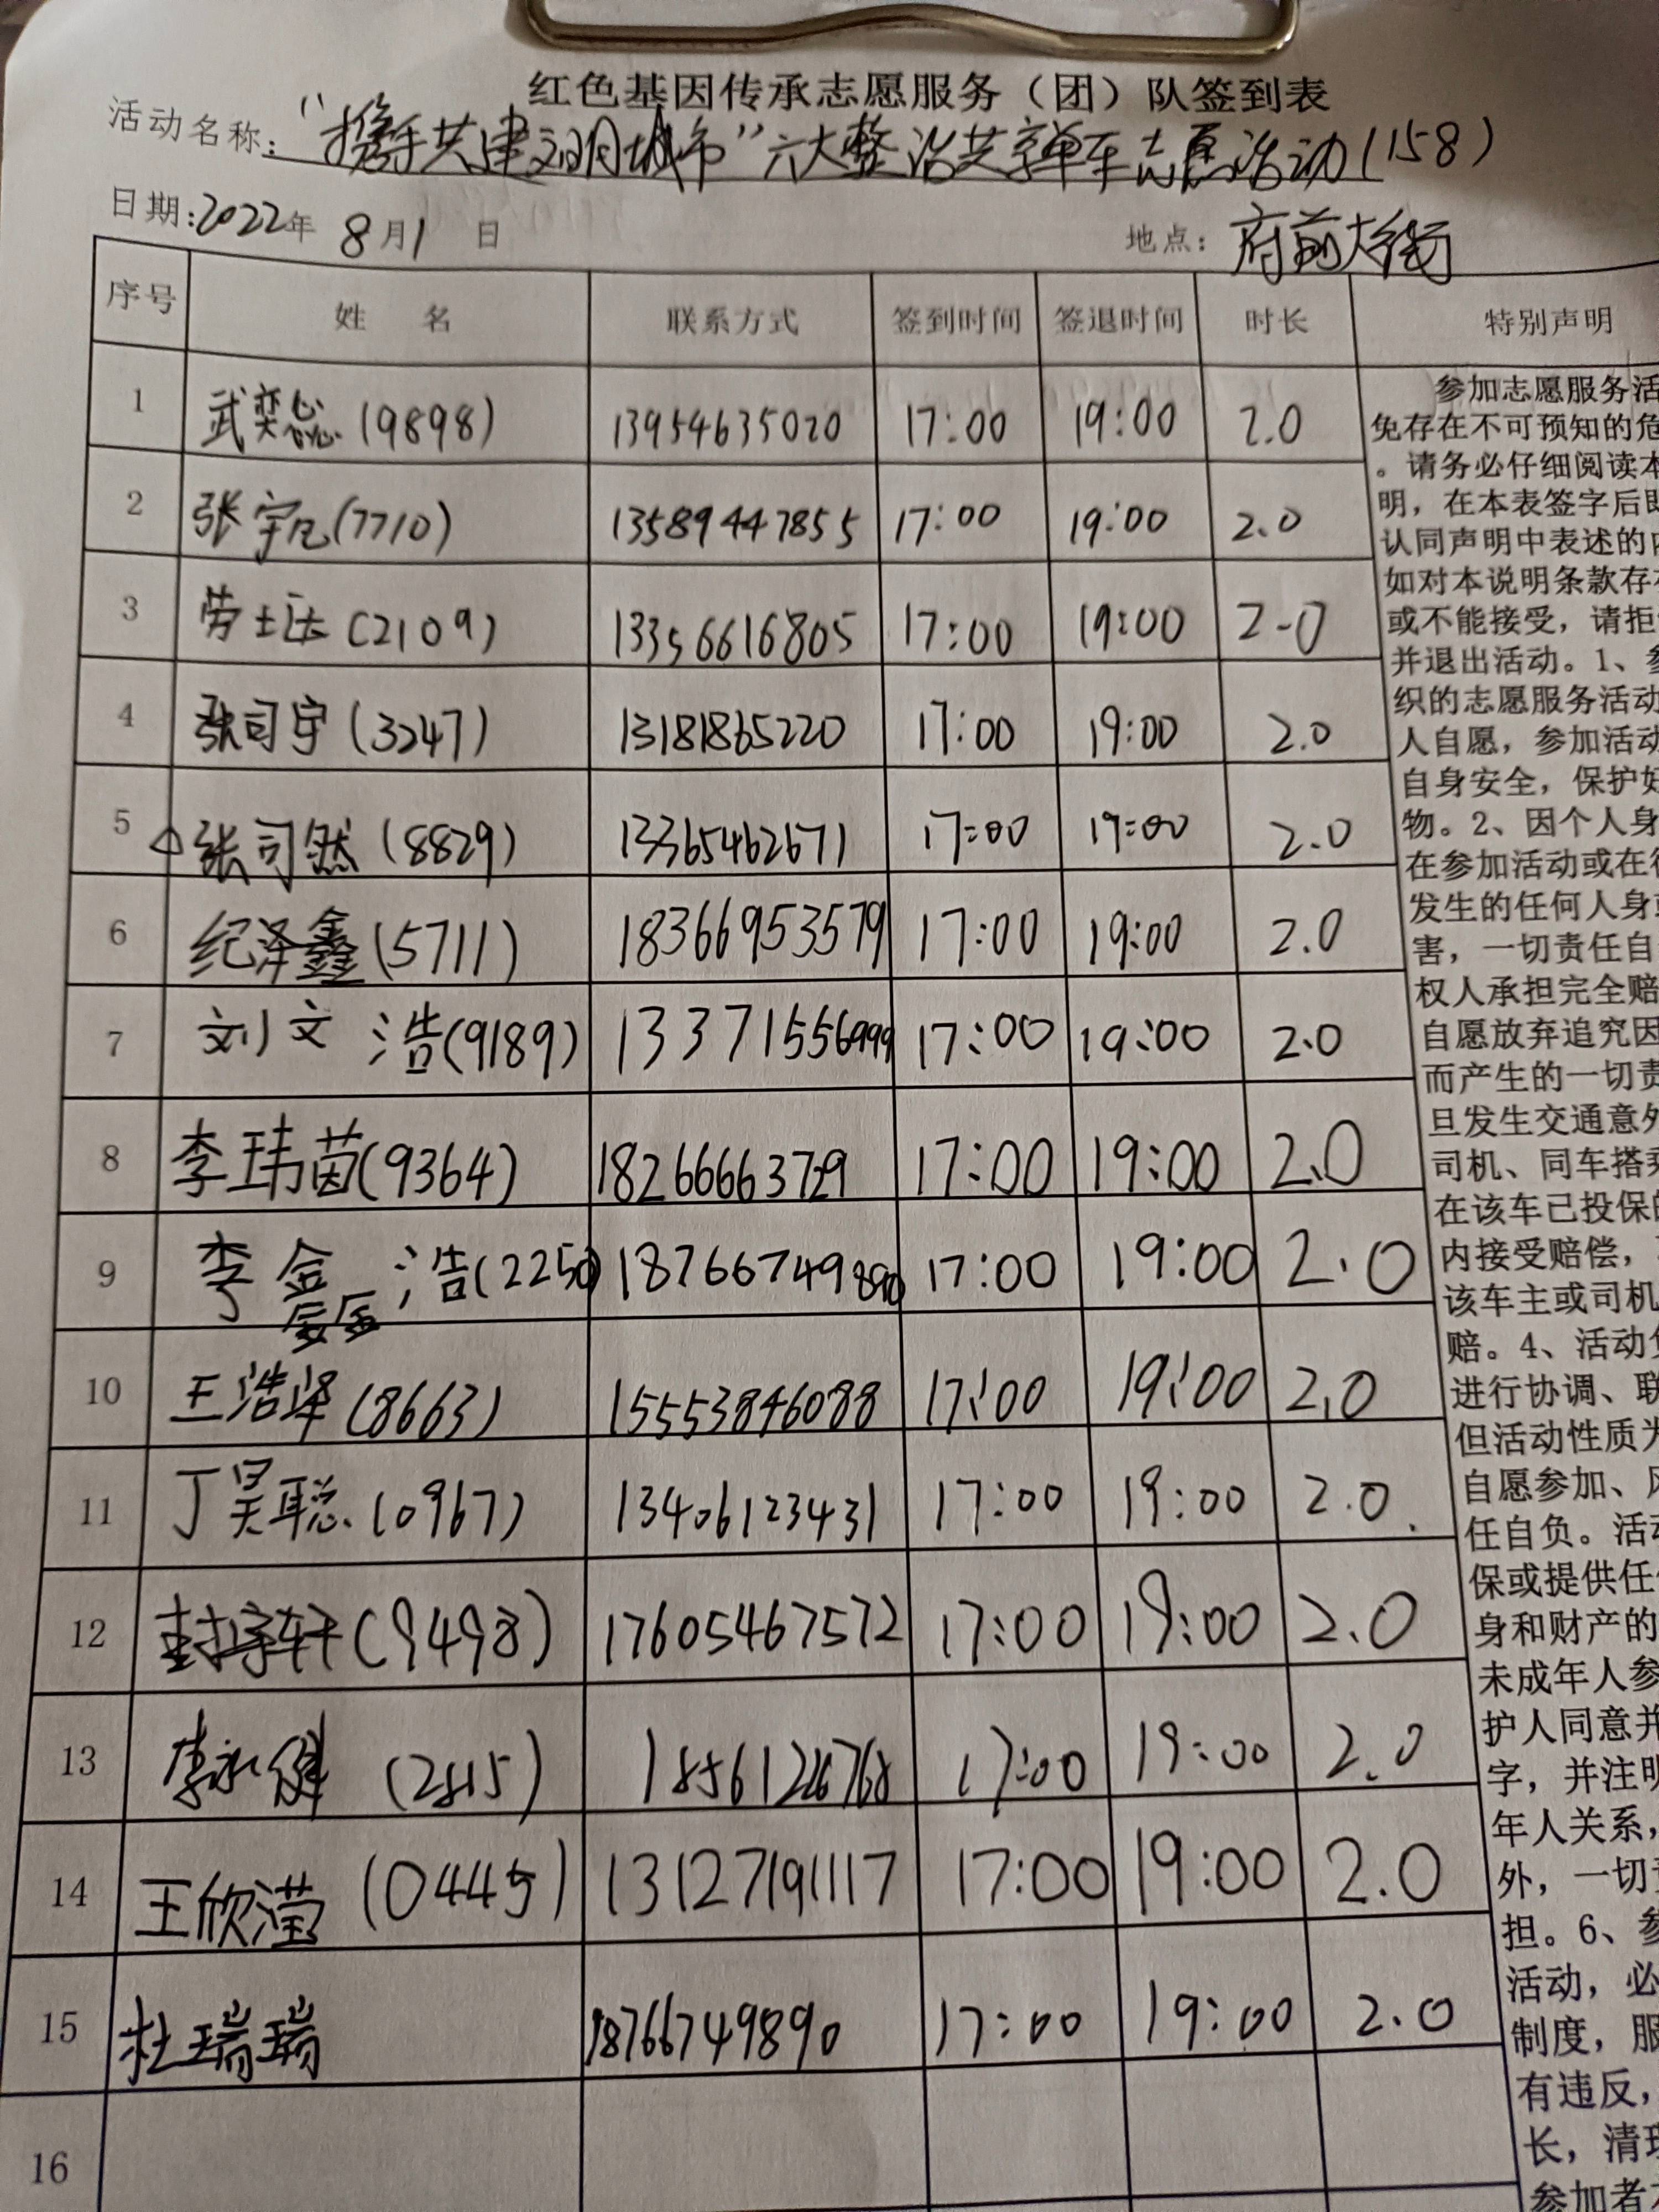 红色基因传承志愿服务（团）队签到表
活动名称："携手共建文明城市"六大整治共享单车志愿活动(158)
日期:2022年 8月1 日 地点：府前大街
序号 姓 名 联系方式 签到时间 签退时间 时长 特别声明
1 武奕聪(9898) 13954635020 17:00 19:00 2.0
2 张宇(7710) 13589447855 17:00 19:00 2.0
3 劳士达(2109) 13356616805 17:00 19:00 2-0
4 张司宇(3247) 13181865220 17:00 19:00 2.0
5 张司然(8829) 13365462671 17:00 19:00 2.0
6 纪泽鑫(5711) 18366953579 17:00 19:00 2.0
7 刘文浩(9189) 13371556999 17:00 19:00 2.0
8 李玮茵(9364) 18266663729 17:00 19:00 2.0
9 李金浩(2250) 18766749890 17:00 19:00 2.0
10 王浩泽(8663) 15553846088 17:00 19:00 2.0
11 丁昊聪(0967) 13406123431 17:00 19:00 2.0
12 封宇轩(9498) 17605467572 17:00 19:00 2.0
13 李永健 17:00 19:00 2.0
14 王欣滢(0445) 13127191117 17:00 19:00 2.0
15 杜瑞瑞 18766749890 17:00 19:00 2.0
16
参加志愿服务活
免存在不可预知的危
。请务必仔细阅读本
明，在本表签字后即
认同声明中表述的内
如对本说明条款存在
或不能接受，请拒
并退出活动。1、参
织的志愿服务活动
人自愿，参加活动
自身安全，保护好
物。2、因个人身
在参加活动或在往
发生的任何人身或
害，一切责任自
权人承担完全赔
自愿放弃追究因
而产生的一切责
旦发生交通意外
司机、同车搭乘
在该车已投保的
内接受赔偿，
该车主或司机
赔。4、活动负
进行协调、联
但活动性质为
自愿参加、风
任自负。活动
保或提供任何
身和财产的
未成年人参
护人同意并
字，并注明
年人关系，
外，一切责
担。6、参
活动，必
制度，服
有违反，
长，清理
参加者